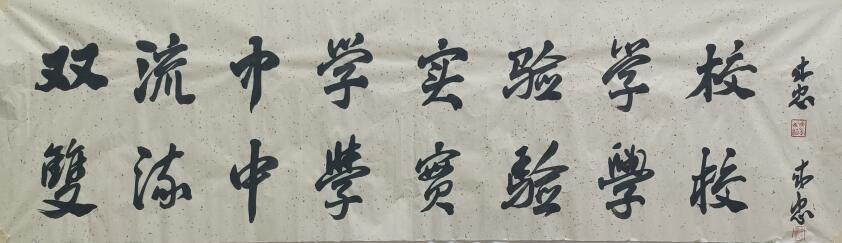 双流中学实验学校
雙流中學實驗學校